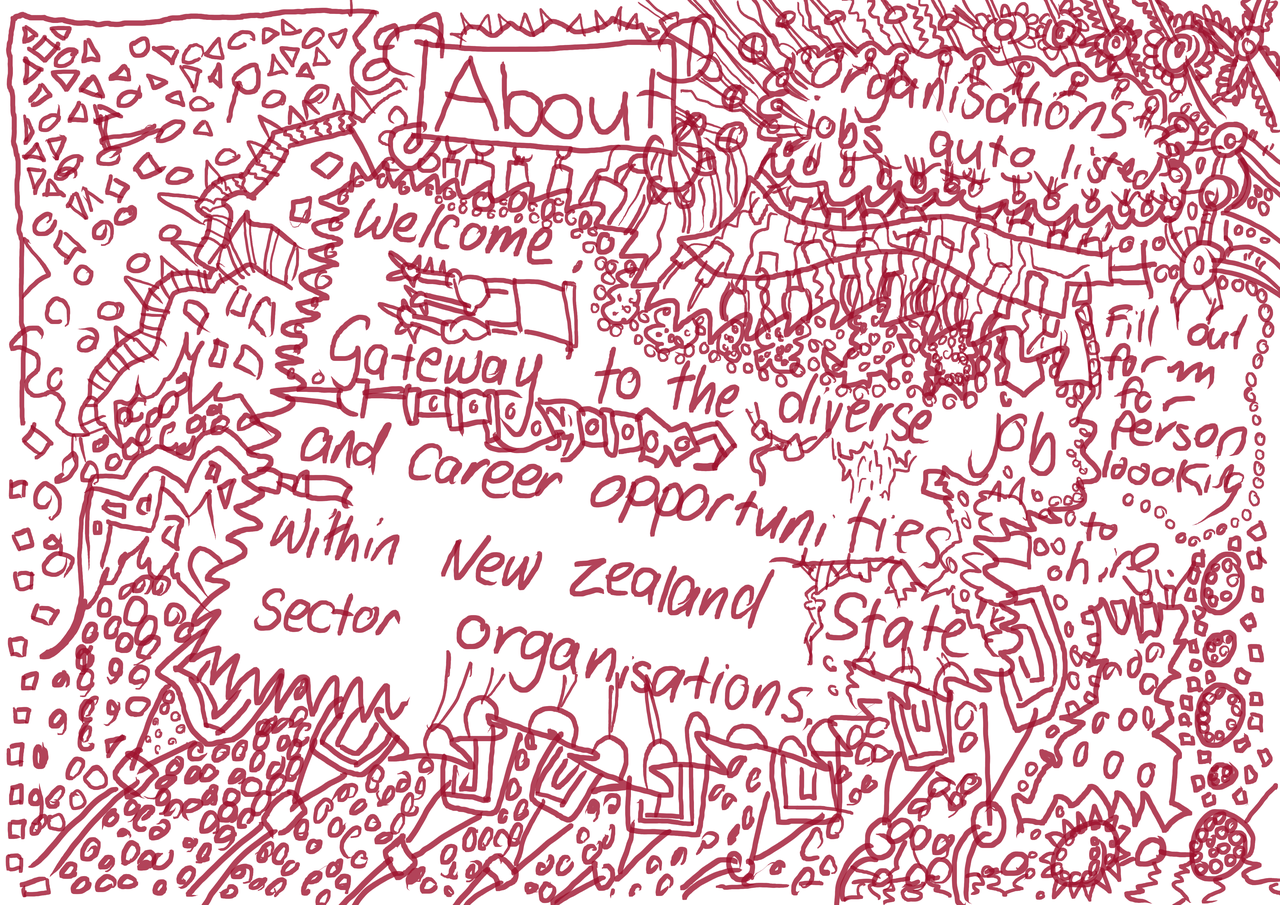 About
organisations
jobs auto listed
Welcome
Gateway to the diverse job
and career opportunities
within New Zealand State
Sector organisations.
Fill out
form
for
person
loooking
to
hire